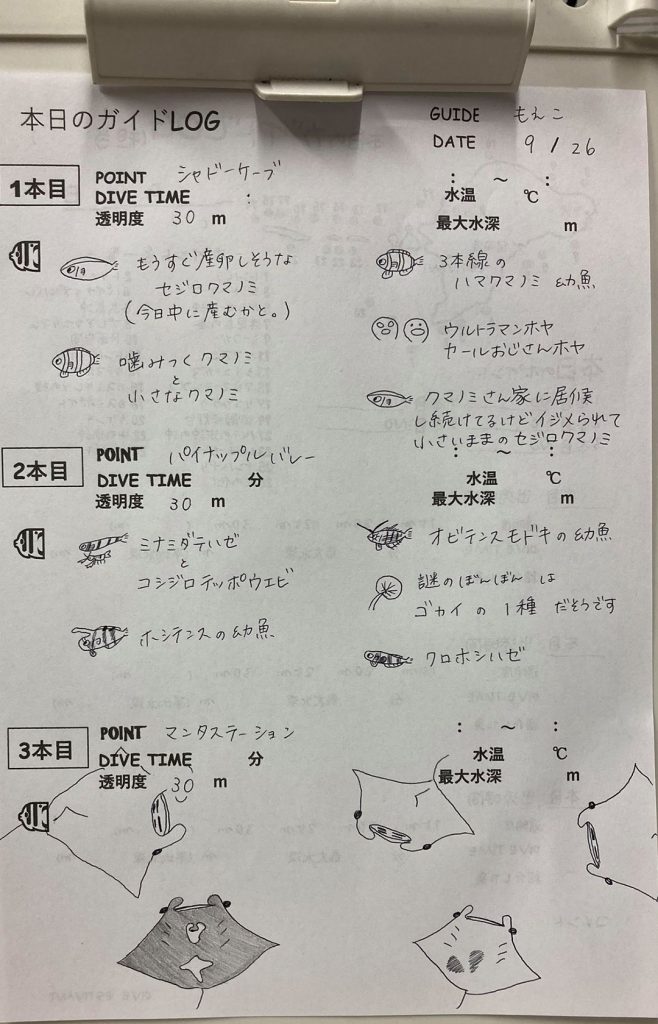 本日のガイドLOG
GUIDE もえこ
DATE 9 / 26
1本目
POINT シャドーケーブ
DIVE TIME :
透明度 30 m
: ~ :
水温 ℃
最大水深 m
もうすぐ産卵しそうな
セジロクマノミ
(今日中に産むかと。)
噛みつくクマノミ
と
小さなクマノミ
3本線の
ハマクマノミ 幼魚
ウルトラマンホヤ
カールおじさんホヤ
クマノミさん家に居候
し続けてるけどイジメられて
小さいままのセジロクマノミ
2本目
POINT パイナップルバレー
DIVE TIME 分
透明度 30 m
: ~ :
水温 ℃
最大水深 m
ミナミダテハゼ
と
コシジロテッポウエビ
ホシテンスの幼魚
オビテンスモドキの幼魚
謎のぼんぼん は
ゴカイ の 1種 だそうです
クロホシハゼ
3本目
POINT マンタステーション
DIVE TIME 分
透明度 30 m
: ~ :
水温 ℃
最大水深 m